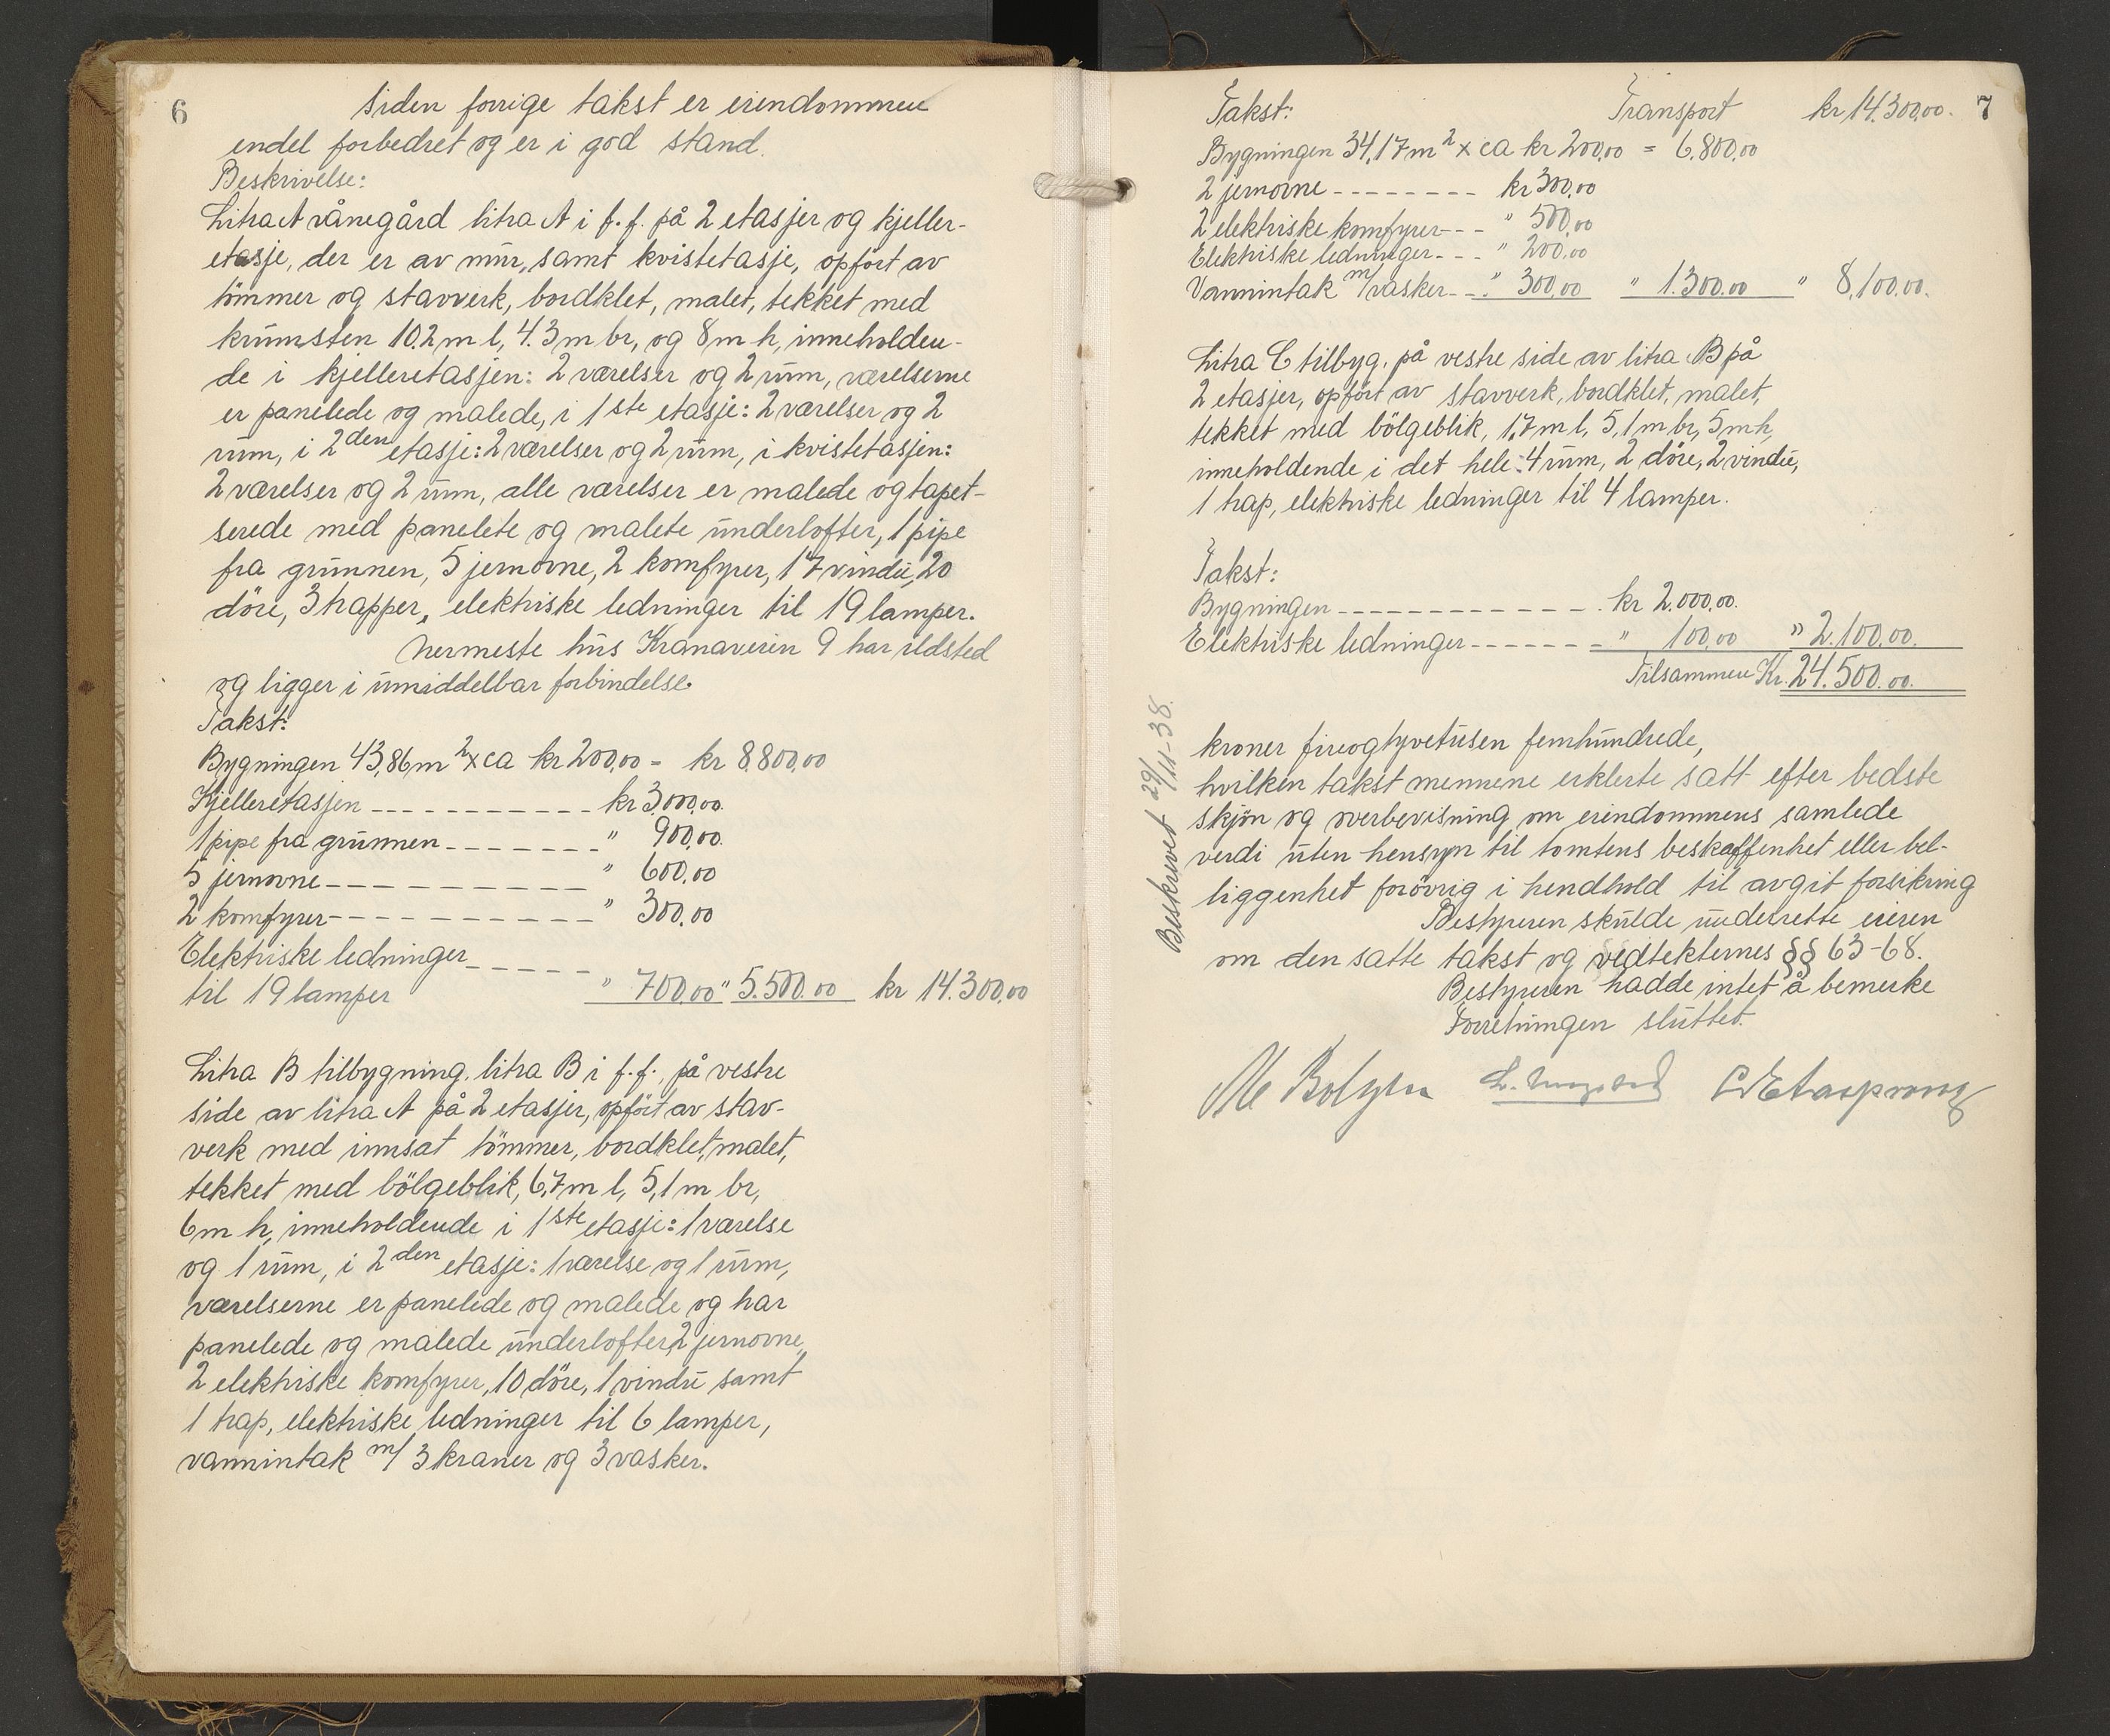 6
Siden forrige takst er eiendommen
endel forbedret og er i god stand.
Beskrivelse:
Litra A vånegård litra A i f. f. på 2 etasjer og kjeller-
etasje, der er av mur, samt kvistetasje, opfört av
tömmer og stavverk, bordklet, malet, tekket med
krumsten 10.2 m l, 4.3 m br, og 8 m h, inneholden-
de i kjelleretasjen: 2 værelser og 2 rum, værelserne
er panelede og malede, i 1ste etasje: 2 værelser og 2
rum, i 2den etasje: 2 værelser og 2 rum, i kvistetasjen:
2 værelser og 2 rum, alle værelser er malede og tapet-
serede med panelete og malete underlofter, 1 pipe
fra grunnen, 5 jernovne, 2 komfyrer, 17 vindu, 20
döre, 3 trapper, elektriske ledninger til 19 lamper.
Nermeste hus Kranaveien 9 har ildsted
og ligger i umiddelbar forbindelse.
Takst:
Bygningen 43,86 m² x ca kr 200,00 = kr 8.800,00
Kjelleretasjen ----------- kr 3.000,00.
1 pipe fra grunnen ------- " 900,00.
5 jernovne ---------- " 600,00
2 komfyrer ---------- " 300,00
Elektriske ledninger -----
til 19 lamper " 700,00 " 5.500.00 kr 14.300,00
Litra B tilbygning. litra B i f. f., på vestre
side av litra A på 2 etasjer, opfört av stav-
verk med innsat tömmer, bordklet, malet,
tekket med bölgeblik, 6,7 m l, 5,1 m br,
6 m h, inneholdende i 1ste etasje: 1 værelse
og 1 rum, i 2den etasje: 1 værelse og 1 rum,
værelserne er panelede og malede og har
panelede og malede underlofter, 2 jernovne,
2 elektriske komfyrer, 10 döre, 1 vindu samt
1 trap, elektriske ledninger til 6 lamper,
vannintak m/ 3 kraner og 3 vasker.
Takst: Transport kr 14.300,00. 7
Bygningen 34,17 m² x ca kr 200,00 = 6.800,00
2 jernovne -------- kr 300,00
2 elektriske komfyrer --- " 500,00
Elektriske ledninger --- " 200,00
Vannintak m/vasker -- " 300,00 " 1.300.00 " 8.100,00.
Litra C tilbyg. på vestre side av litra B på
2 etasjer, opfört av stavverk, bordklet, malet,
tekket med bölgeblik, 1,7 m l, 5,1 m br, 5 m h,
inneholdende i det hele: 4 rum, 2 döre, 2 vindu,
1 trap, elektriske ledninger til 4 lamper.
Takst:
Bygningen ------------ kr 2.000,00.
Elektriske ledninger ------- " 100,00 " 2.100,00.
Tilsammen Kr. 24.500.00.
kroner fireogtyvetusen femhundrede,
hvilken takst mennene erklerte satt efter bedste
skjön og overbevisning om eiendommens samlede
verdi uten hensyn til tomtens beskaffenhet eller bel-
liggenhet forövrig i hendhold til avgit forsikring
Bestyreren skulde underrette eieren
om den satte takst og vedtekternes §§ 63-68.
Bestyreren hadde intet å bemerke
Forretningen sluttet.
Beskrevet 29/11-38.